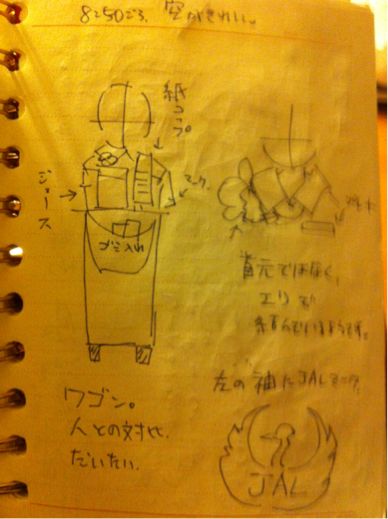 8:50ごろ、空がきれい。
紙コップ
ジュース
マーク
ゴミ入れ
首元ではなく、
エリで
結んでいるようです。
左の袖にJALマーク。
JAL
ワゴン。
人との対比、
だいたい。